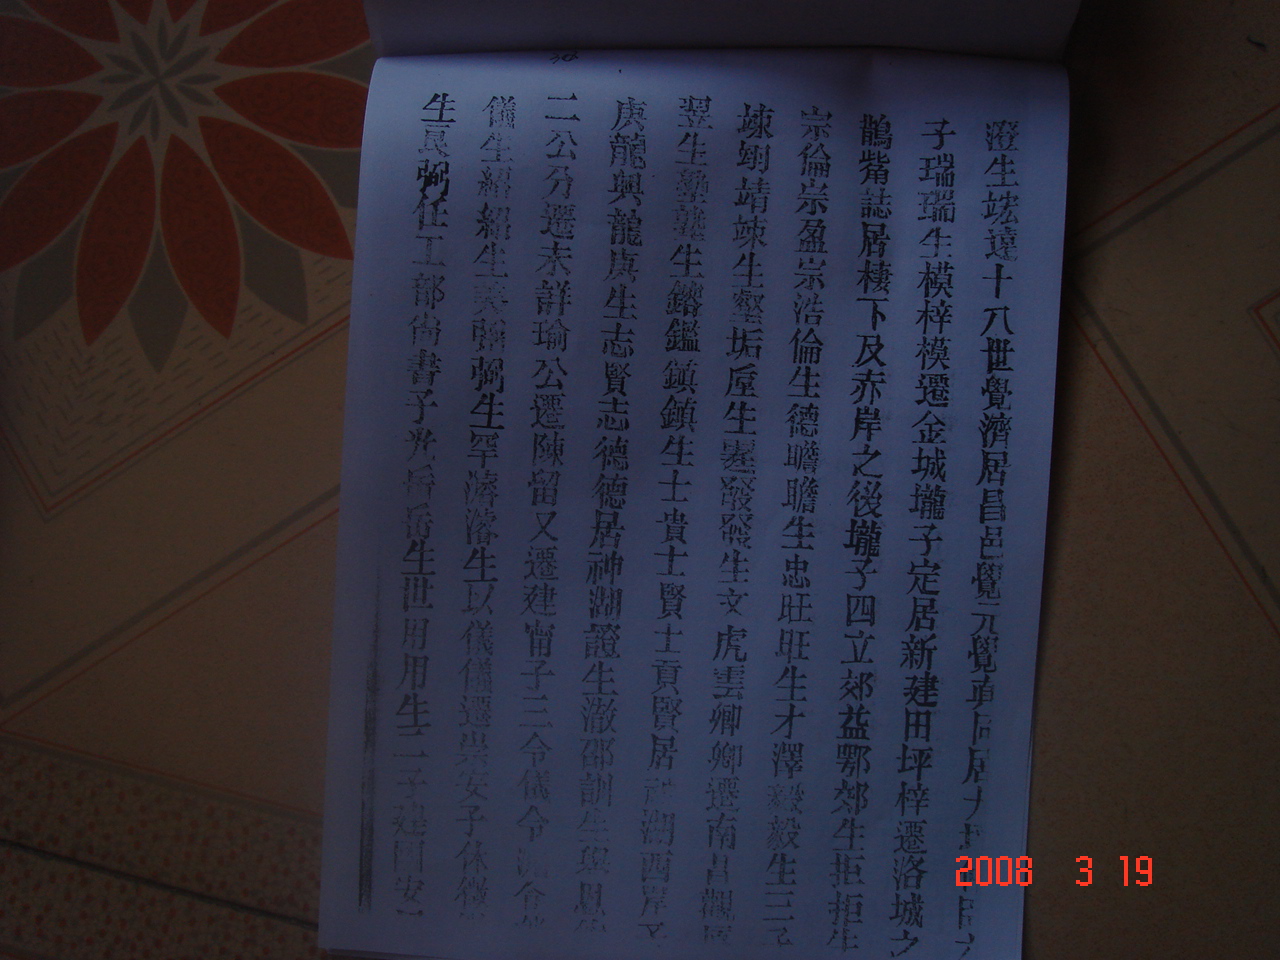 澄生竤遠十八世覺濟居昌邑覺元覺真同居
子瑞瑞生模梓模遷金城壠子定居新建田坪梓遷洛城之
鵲觜誌居棲下及赤岸之後壠子四立郊益鄂郊生拒拒生
宗倫宗盈宗浩倫生德瞻瞻生忠旺旺生才澤毅毅生三子
竦翊靖竦生壑垢垕生發發生文虎雲卿卿遷南昌觀
翌生塾生鎔鑑鎮鎮生士貴士賢士貢賢居神湖西岸
庚龍興龍庚生志賢志德德居神湖證生澈邵訓生
二公分遷未詳瑜公遷陳留又遷建甯子三令儀令
儀生紹紹生弼弼生罕濬濬生以儀儀遷崇安子休
生良弼任工部尙書子光岳岳生世用用生二子建國安
2008 3 19